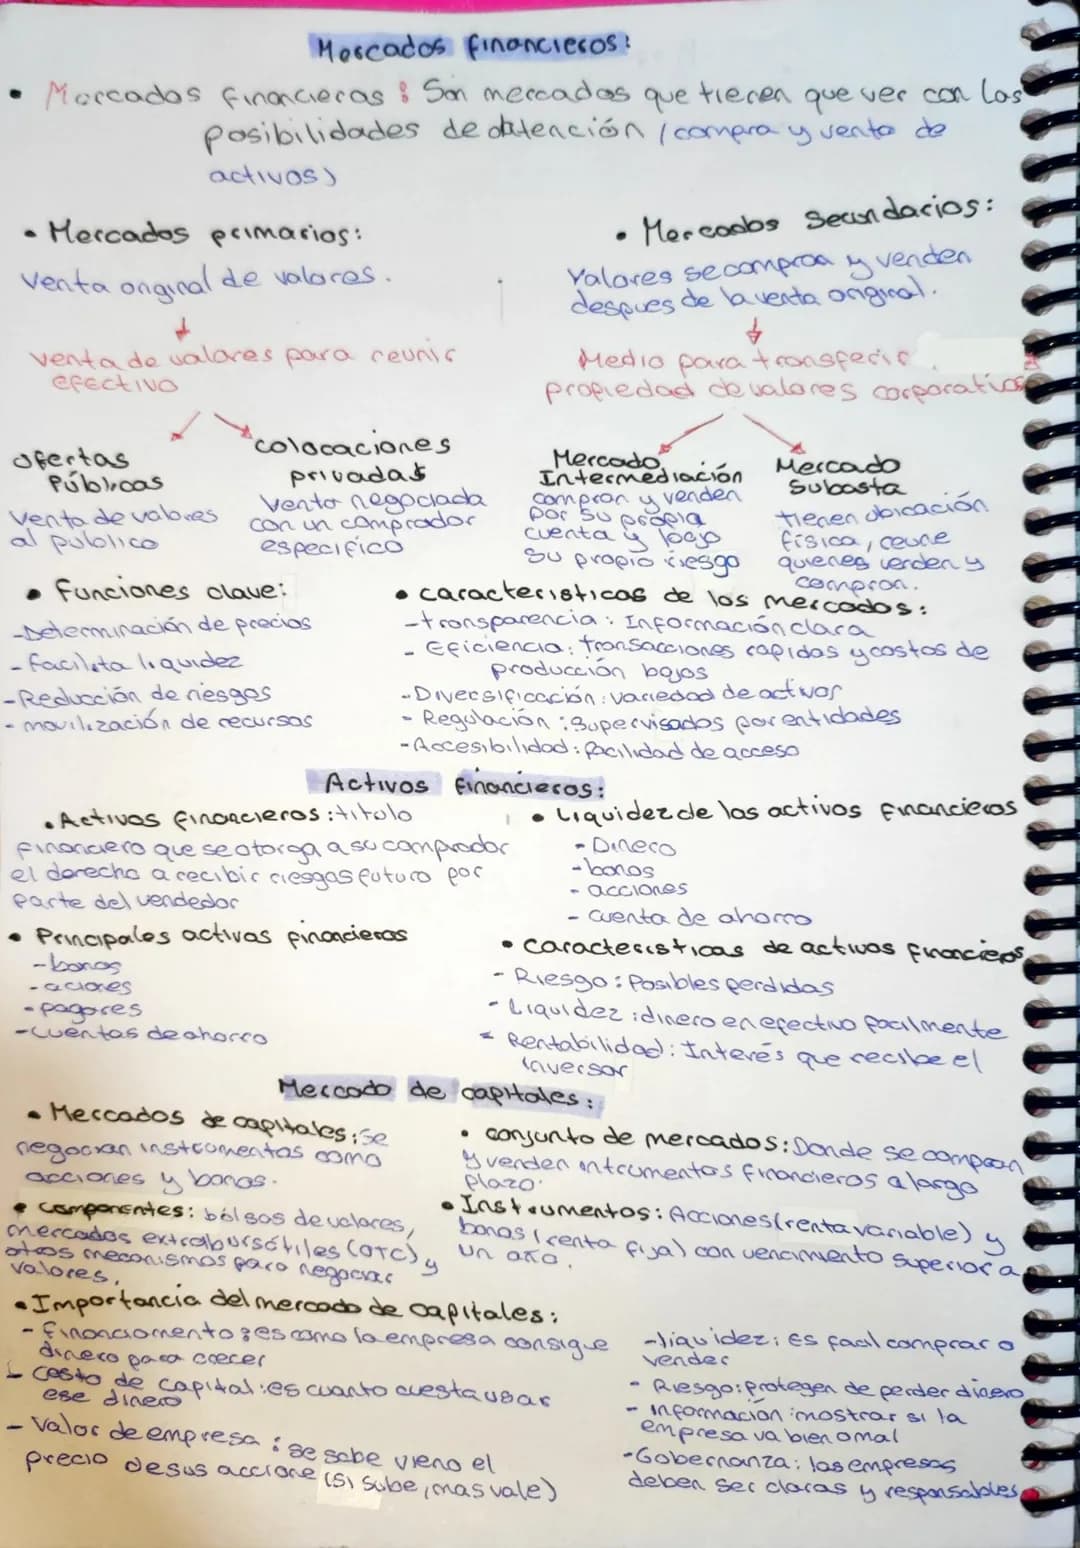 Mercados financieros:
• Mercados financieros: Son mercados que tienen que ver con las
posibilidades de obtención (compra y venta de
activos)
• Mercados primarios:
Venta original de valores.
↓
venta de valores para reunir
efectivo
Ofertas
Públicas
Venta de valores
al público
colocaciones
privadas
Venta negociada
con un comprador
especifico
• Mercados Secundarios:
Valores se compran y venden
despues de la venta original.
↓
Medio para transferir
propiedad de valores corporativos
Mercado
Intermediación
compran y venden
por su propia
cuenta y bajo
su propio riesgo
Mercado
Subasta
tienen ubicación
física, reune
quienes venden y
compran.
• Funciones clave:
-Determinación de precios
- facilita liquidez
-Reducción de riesgos
- movilización de recursos
• características de los mercados:
-transparencia: Información clara
- Eficiencia: transacciones rapidas y costos de
producción bajos
-Diversificación: variedad de activos
- Regulación: Supervisados por entidades
-Accesibilidad: facilidad de acceso
Activos financieros:
• Activos financieros: titulo
financiero que se otorga a su comprador
el derecho a recibir riesgos futuro por
parte del vendedor
• Liquidez de los activos financieros
- Dinero
-bonos
- acciones
- cuenta de ahorro
• Principales activos financieros
-bonos
-aciones
-pagores
-cuentas de ahorro
• características de activos financieros
- Riesgo: Posibles perdidas
- Liquidez: dinero en efectivo facilmente
- Rentabilidad: Interés que recibe el
inversor
Mercado de capitales:
• Mercados de capitales: se
negocian instrumentos como
acciones y bonos.
• conjunto de mercados: Donde se compran
y venden intrumentos financieros a largo
plazo.
• componentes: bolsas de valores,
mercados extrabursátiles (OTC) y
otros mecanismos para negociar
valores.
• Instrumentos: Acciones (renta variable) y
bonos (renta fija) con vencimiento superior a
un año.
• Importancia del mercado de capitales:
- financiamento: es como la empresa consigue
dinero para crecer
- costo de capital: es cuanto cuesta usar
ese dinero
- Valor de empresa: se sabe vieno el
precio de sus accione (si sube, mas vale)
-liquidez: Es facil comprar o
vender
- Riesgo: protegen de perder dinero
- información: mostrar si la
empresa va bien o mal
-Gobernanza: las empresas
deben ser claras y responsables